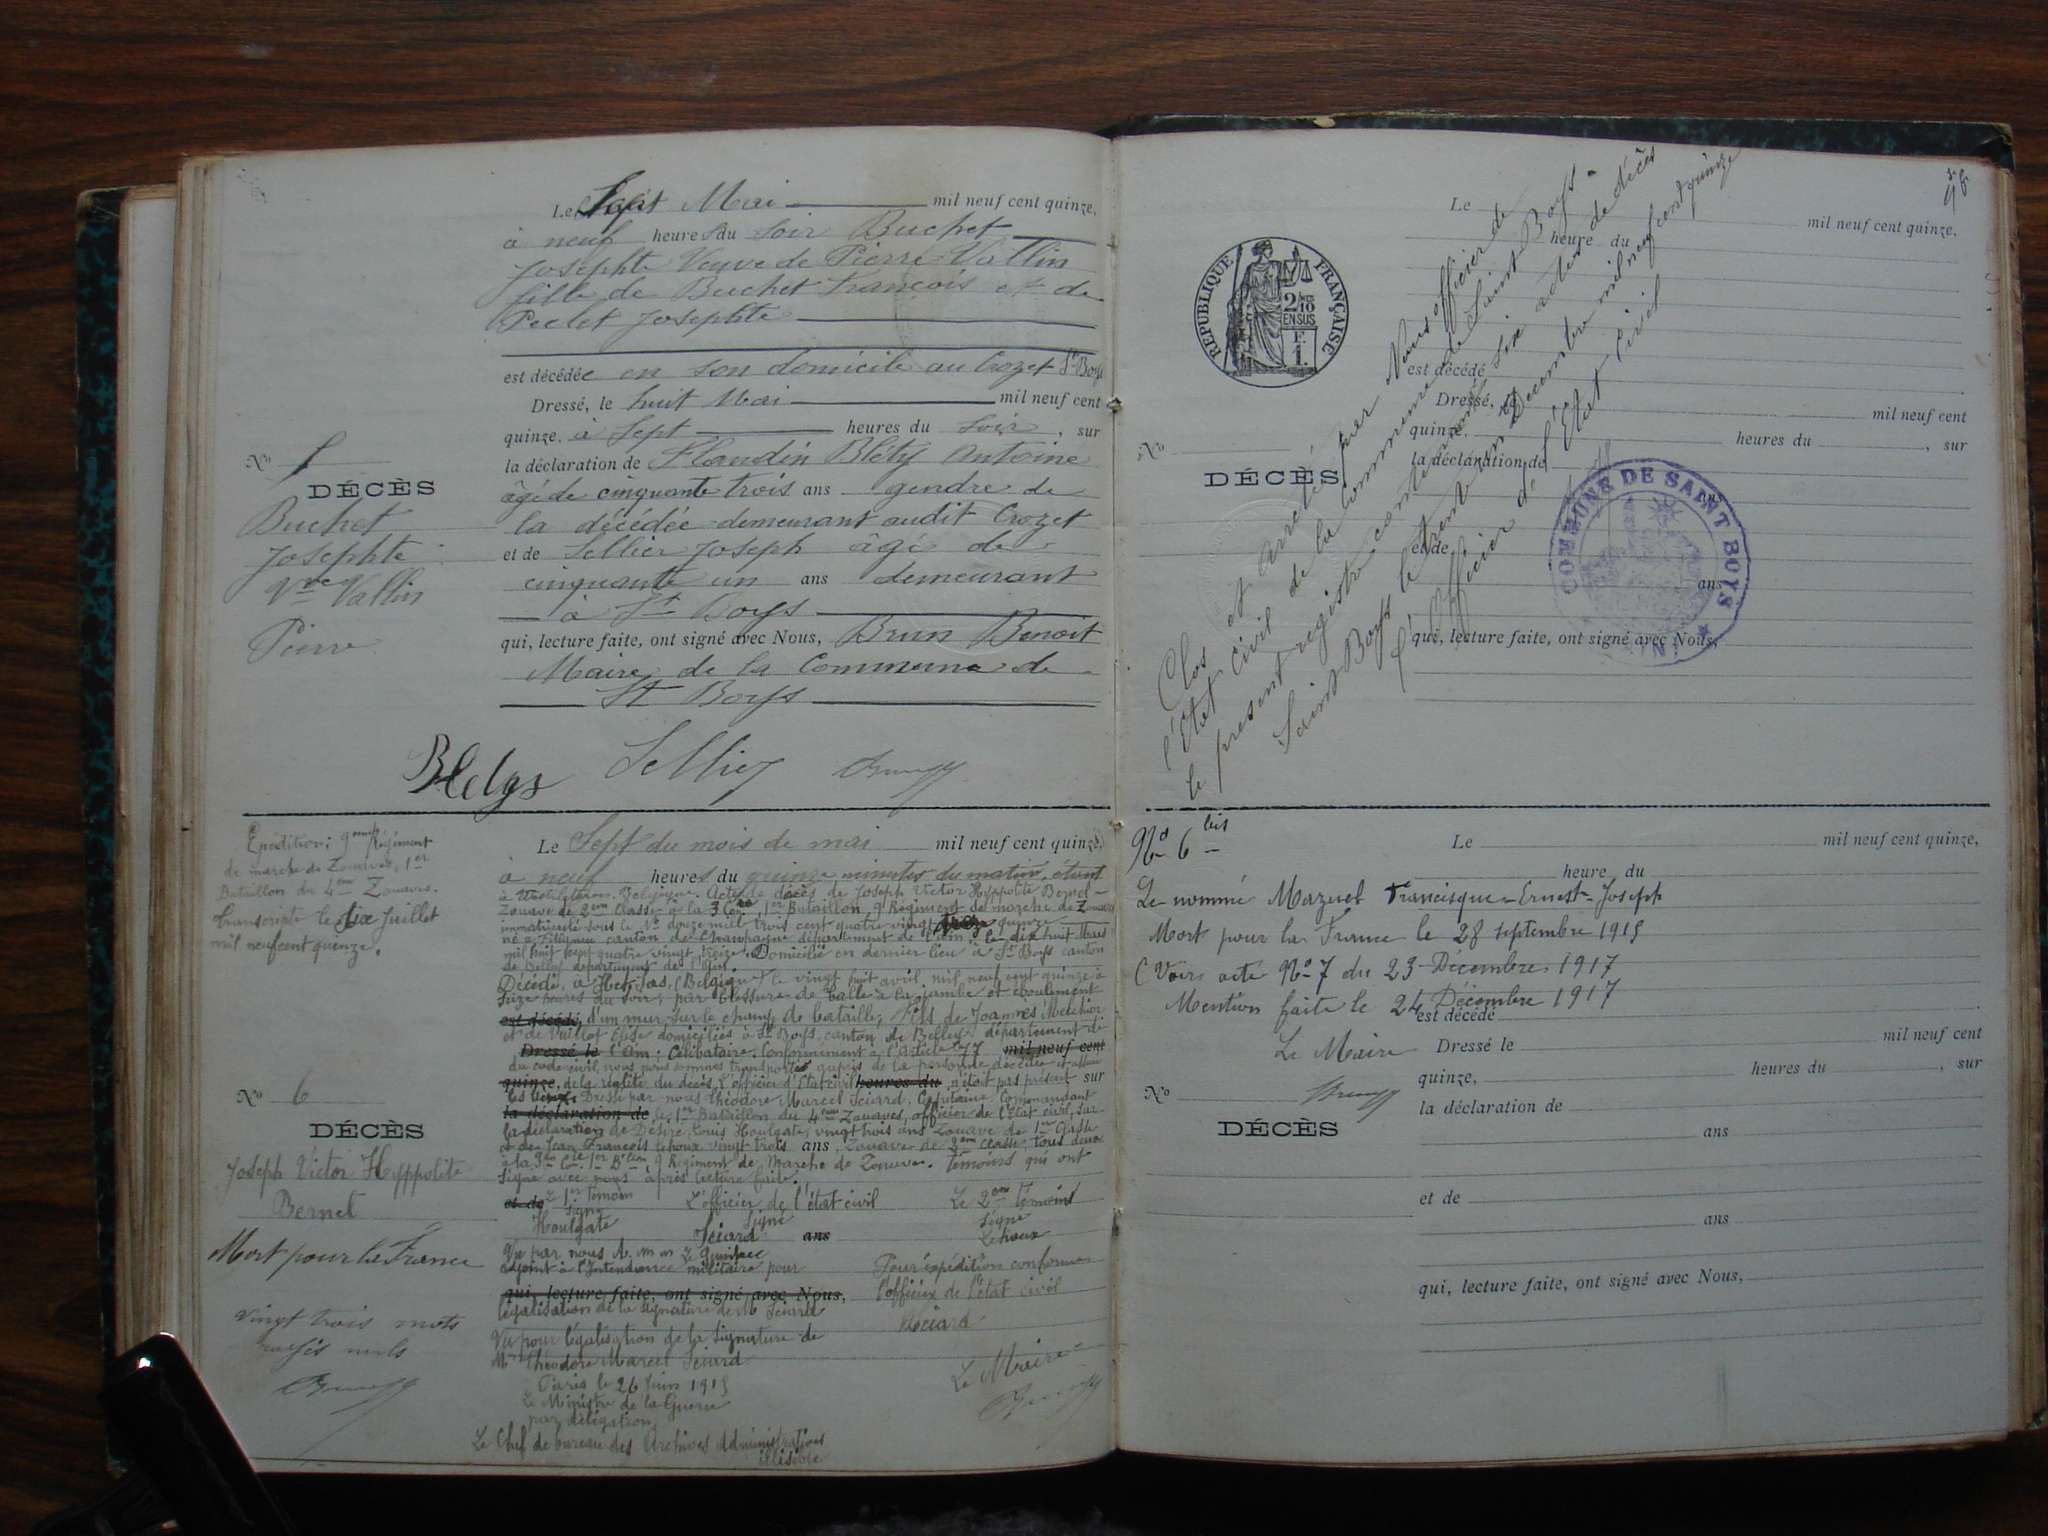 Le Sept Mai mil neuf cent quinze,
à neuf heures du soir Buchet
Josephte Veuve de Pierre Vallin
fille de Buchet François et de
Peclet Josephte
est décédée en son domicile au Crozet St Boys
Dressé, le huit Mai mil neuf cent
quinze, à Sept heures du soir, sur
la déclaration de Flandin Bléty Antoine
âgé de cinquante trois ans gendre de
la décédée demeurant audit Crozet
et de Sellier Joseph âgé de
cinquante un ans demeurant
à St Boys
qui, lecture faite, ont signé avec Nous, Brun Benoit
Maire de la Commune de
St Boys
Sellier
No
DÉCÈS
Buchet
Josephte
Vve Vallin
Pierre
Expédition: 9eme Régiment
de marche de Zouaves, 1er
Bataillon du 4eme Zouaves.
Transcripte le six Juillet
mil neuf cent quinze.
No 6
DÉCÈS
Joseph Victor Hypppolite
Bernet
Mort pour la France
Vingt trois mots
rayés nuls
Le Sept du mois de mai mil neuf cent quinze,
à neuf heures du quinze minutes du matin, étant
Belgique. Acte de décès de Joseph Victor Hyppolite Bernet
Zouave de 2eme Classe à la 3 Cie, 1er Bataillon, 9 Régiment de marche de Zouaves
immatriculé sous le No douze mil trois cent quatre vingt quinze
canton de Champagne département de l'Ain le dix huit Mars
mil huit cent quatre vingt treize. Domicilié en dernier lieu à St Boys canton
de Belley département de l'Ain.
Décédé, à Het-Sas, (Belgique) le vingt huit avril, mil neuf cent quinze à
seize heures du soir, par blessure de balle à la jambe et éboulement
est décédé d'un mur sur le champ de bataille, fils de Joannès Melchior
et de Vuillot Elise domiciliés à St Boys, canton de Belley département de
Dressé le l'Ain. Célibataire. Conformément à l'article 77 mil neuf cent
du code civil, nous nous sommes transportés auprès de la personne décédée et assuré
quinze, de la réalité du décès. L'officier d'Etat civil heures du n'était pas présent sur
les lieux. Dressé par nous Théodore Marcel Sciard, Capitaine Commandant
la déclaration de le 1er Bataillon du 4eme Zouaves, officier de l'Etat civil, sur
la déclaration de Désiré Louis Houlgate, vingt trois ans Zouave de 1er Classe
et de Jean François Lehoux vingt trois ans, Zouave de 2eme Classe, tous deux
à la 3e Cie 1er Bton, 9 Régiment de Marche de Zouaves. témoins qui ont
signé avec nous après lecture faite.
et de Le 1er témoin L'officier de l'état civil Le 2eme témoins
signé Signé Signé
Houlgate Sciard ans Lehoux
Vu par nous
adjoint à l'Intendance militaire pour Pour expédition conforme
qui, lecture faite, ont signé avec Nous, l'officier de l'état civil
légalisation de la signature de M. Sciard
Sciard
Vu pour légalisation de la signature de
Mr Théodore Marcel Sciard
Paris le 26 Juin 1915 Le Maire
Le Ministre de la Guerre
par délégation
Le Chef de bureau des Archives Administratives
illisible
Le mil neuf cent quinze,
heure du
RÉPUBLIQUE FRANÇAISE
2/10
EN SUS
1 F.
est décédé
Dressé, le mil neuf cent
quinze, heures du , sur
No la déclaration de
DÉCÈS
ans
et de
ans
qui, lecture faite, ont signé avec Nous,
COMMUNE DE SAINT BOYS
Clos et arrêté par Nous officier de
l'Etat Civil de la Commune de Saint Boys.
le présent registre contenant six actes de décès
Saint Boys le trente un Décembre mil neuf cent quinze
L'Officier de l'Etat Civil
No 6 bis
Le mil neuf cent quinze,
heure du
Le nommé Mazuet Francisque-Ernest-Joseph
Mort pour la France le 28 septembre 1915
(Voir acte No 7 du 23 Décembre 1917
Mention faite le 24 Décembre 1917
est décédé
Le Maire Dressé le mil neuf cent
quinze, heures du , sur
No la déclaration de
DÉCÈS
ans
et de
ans
qui, lecture faite, ont signé avec Nous,